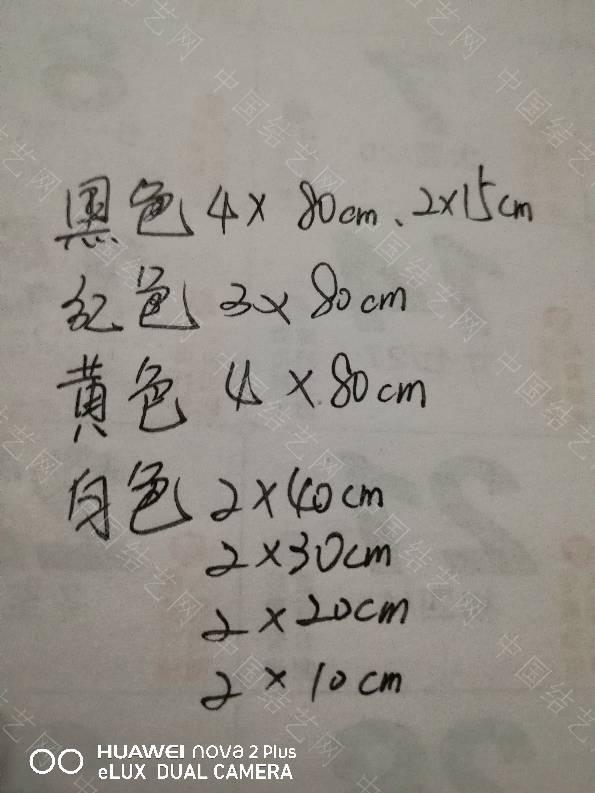 黑色 4× 80cm、2×15cm
红色 3× 80cm
黄色 4 × 80cm
白色 2×40cm
2×30cm
2×20cm
2×10cm
HUAWEI nova 2 Plus
eLUX DUAL CAMERA
中国结艺网